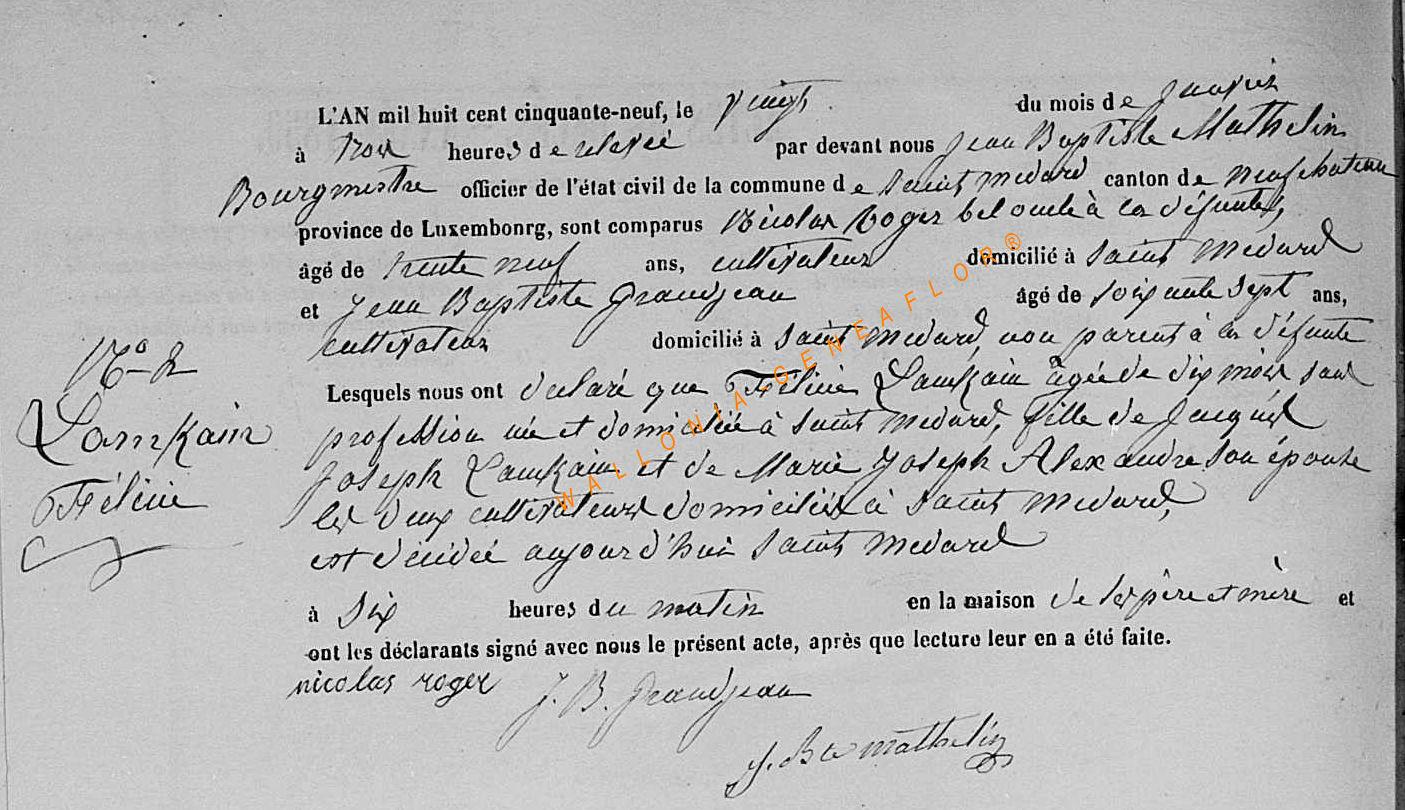 L'AN mil huit cent cinquante-neuf, le vingt du mois de Janvier
à trois heures de relevée par devant nous Jean Baptiste Mathelin
Bourgmestre officier de l'état civil de la commune de Saint Medard canton de Neufchateau
province de Luxembonrg, sont comparus Nicolas Roger bel oncle à la défunte,
âgé de trente neuf ans, cultivateur domicilié à Saint Medard
et Jean Baptiste Grandjean âgé de soixante sept ans,
cultivateur domicilié à Saint Medard, non parent à la défunte
Lesquels nous ont déclaré que Félicie Lamkain âgée de dix mois sans
profession née et domiciliée à Saint Medard, fille de Jacques
Joseph Lamkain et de Marie Joseph Alexandre son épouse
les deux cultivateurs domiciliés à Saint Medard,
est décédée aujourd'hui Saint Medard
à six heures du matin en la maison de ses père et mère et
ont les déclarants signé avec nous le présent acte, après que lecture leur en a été faite.
N° 2
Lamkain
Félicie
nicolas roger
J. B. Grandjean
J. Bte mathelin
WALLONIA-GENEAFLOR®